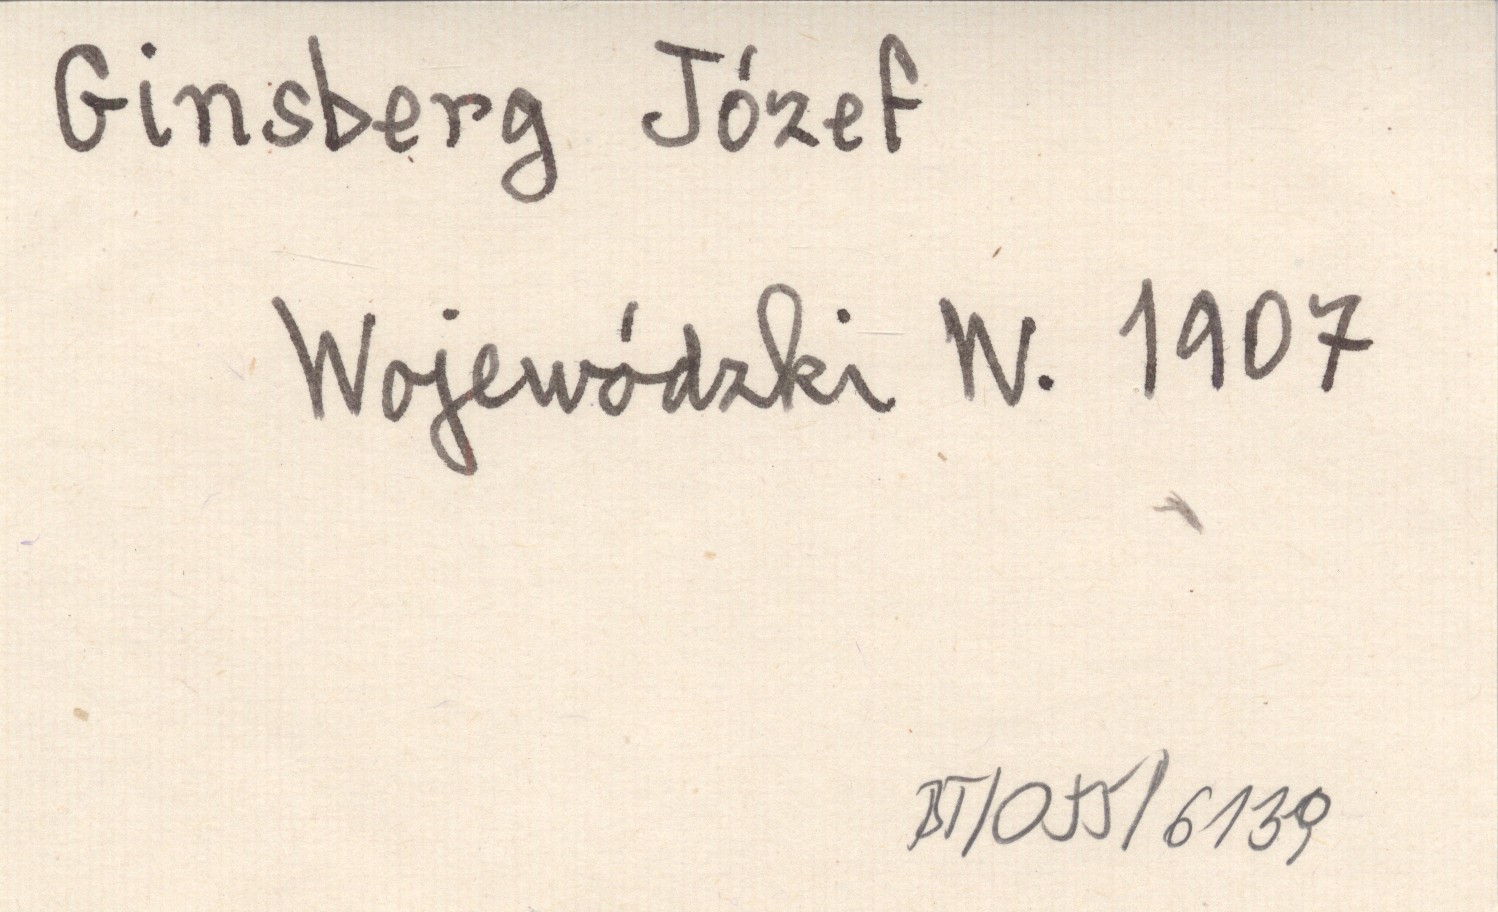 Ginsberg Józef
Wojewódzki W. 1907
BT/055/6139